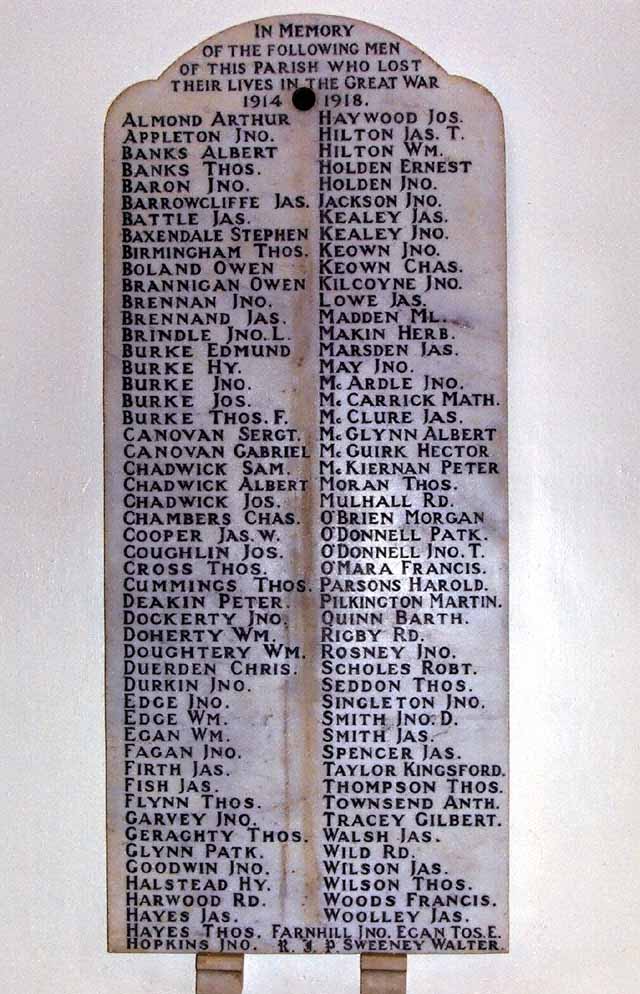 IN MEMORY
OF THE FOLLOWING MEN
OF THIS PARISH WHO LOST
THEIR LIVES IN THE GREAT WAR
1914 1918.
ALMOND ARTHUR
APPLETON JNO.
BANKS ALBERT
BANKS THOS.
BARON JNO.
BARROWCLIFFE JAS.
BATTLE JAS.
BAXENDALE STEPHEN
BIRMINGHAM THOS.
BOLAND OWEN
BRANNIGAN OWEN
BRENNAN JNO.
BRENNAND JAS.
BRINDLE JNO. L.
BURKE EDMUND
BURKE HY.
BURKE JNO.
BURKE JOS.
BURKE THOS. F.
CANOVAN SERGT.
CANOVAN GABRIEL
CHADWICK SAM.
CHADWICK ALBERT
CHADWICK JOS.
CHAMBERS CHAS.
COOPER JAS. W.
COUGHLIN JOS.
CROSS THOS.
CUMMINGS THOS.
DEAKIN PETER.
DOCKERTY JNO.
DOHERTY WM.
DOUGHTERY WM.
DUERDEN CHRIS.
DURKIN JNO.
EDGE JNO.
EDGE WM.
EGAN WM.
FAGAN JNO.
FIRTH JAS.
FISH JAS.
FLYNN THOS.
GARVEY JNO.
GERAGHTY THOS.
GLYNN PATK.
GOODWIN JNO.
HALSTEAD HY.
HARWOOD RD.
HAYES JAS.
HAYES THOS.
HOPKINS JNO.
HAYWOOD JOS.
HILTON JAS. T.
HILTON WM.
HOLDEN ERNEST
HOLDEN JNO.
JACKSON JNO.
KEALEY JAS.
KEALEY JNO.
KEOWN JNO.
KEOWN CHAS.
KILCOYNE JNO.
LOWE JAS.
MADDEN ML.
MAKIN HERB.
MARSDEN JAS.
MAY JNO.
McARDLE JNO.
McCARRICK MATH.
McCLURE JAS.
McGLYNN ALBERT
McGUIRK HECTOR
McKIERNAN PETER
MORAN THOS.
MULHALL RD.
O'BRIEN MORGAN
O'DONNELL PATK.
O'DONNELL JNO. T.
O'MARA FRANCIS.
PARSONS HAROLD.
PILKINGTON MARTIN.
QUINN BARTH.
RIGBY RD.
ROSNEY JNO.
SCHOLES ROBT.
SEDDON THOS.
SINGLETON JNO.
SMITH JNO. D.
SMITH JAS.
SPENCER JAS.
TAYLOR KINGSFORD.
THOMPSON THOS.
TOWNSEND ANTH.
TRACEY GILBERT.
WALSH JAS.
WILD RD.
WILSON JAS.
WILSON THOS.
WOODS FRANCIS.
WOOLLEY JAS.
FARNHILL JNO. EGAN TOS. E.
R. I. P. SWEENEY WALTER.